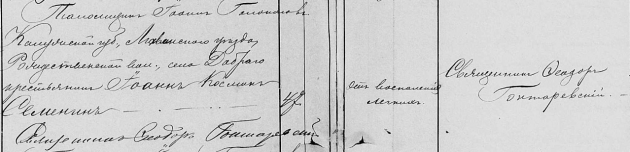 Псаломщикъ Іоаннъ
Калужской губ., Лихвинскаго уѣзда,
Рождественской вол., села Добраго
крестьянинъ Іоаннъ Косминъ
Семенинъ
47
отъ воспаленія
легкихъ
Священникъ Ѳеодоръ
Гонтаревскій
Священникъ Ѳеодоръ Гонтаревскій